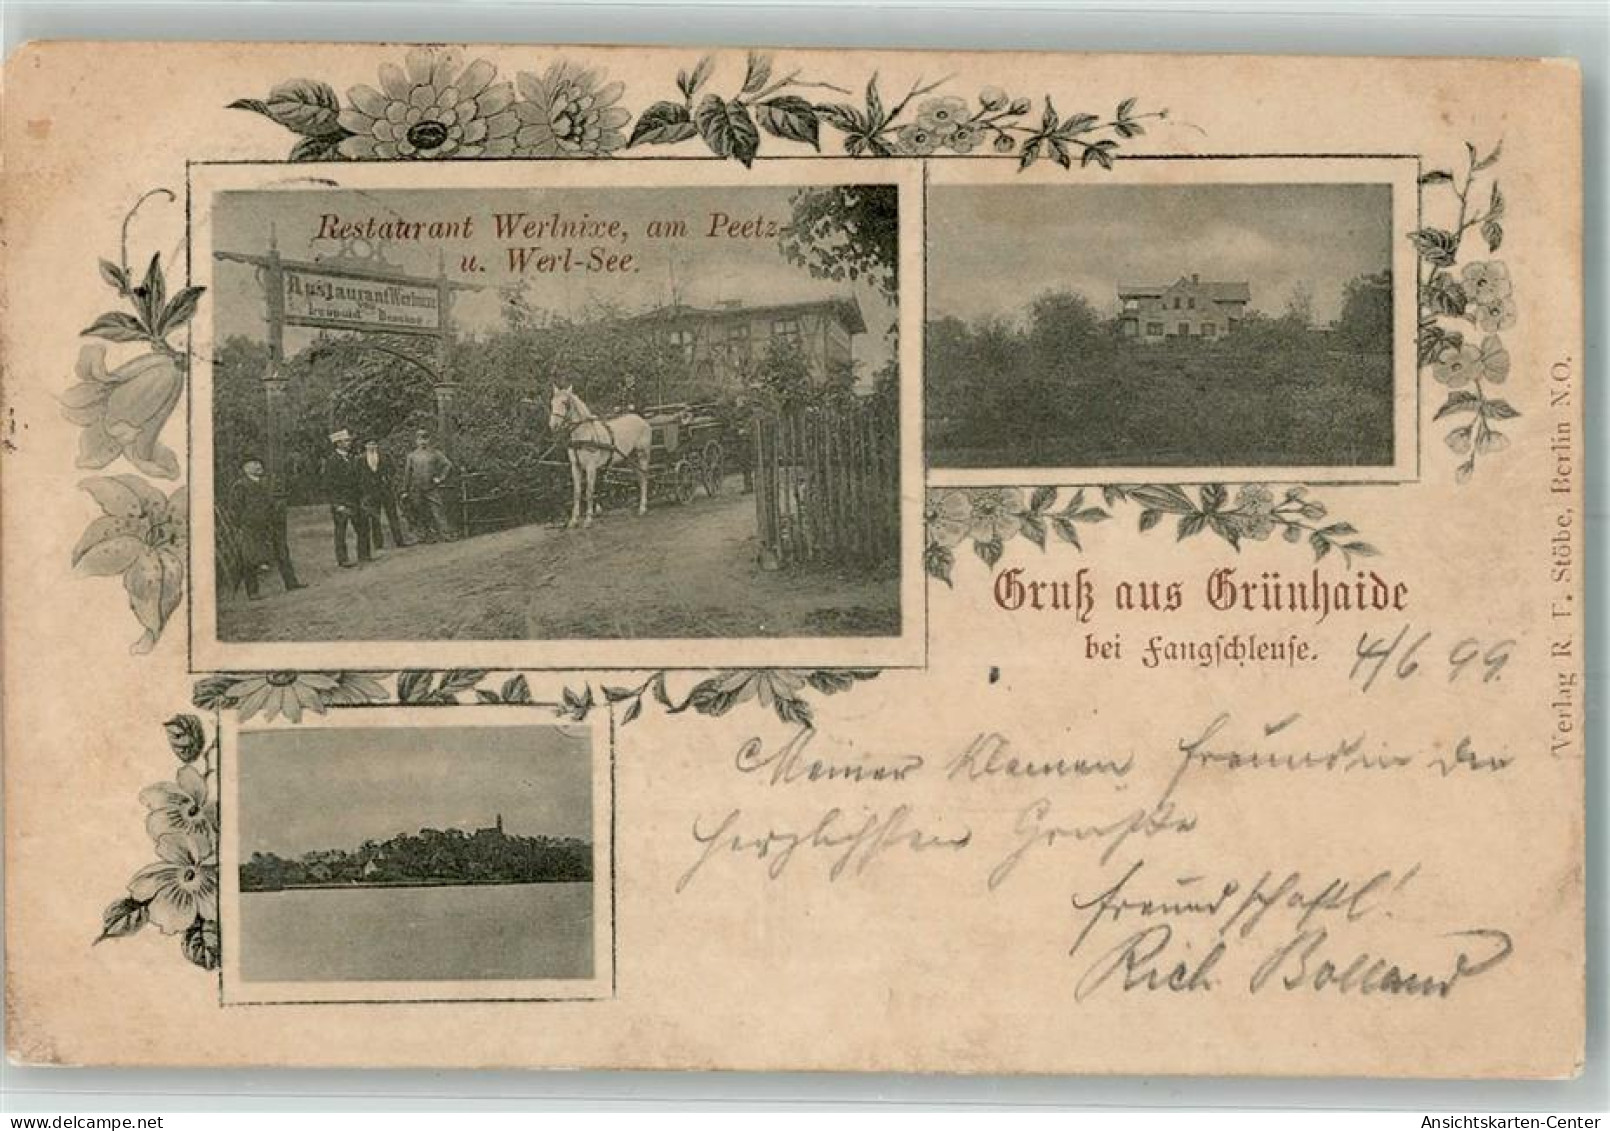 Restaurant Werlnixe, am Peetz-
u. Werl-See.
Restaurant Werlnixe
Gruß aus Grünhaide
bei Fangschleuse.
4/6 99.
Meiner kleinen Freundin die
herzlichsten Grüße
Freundschaftl!
Rich. Bolland
Verlag R. T. Stöbe, Berlin N.O.
Ansichtskarten-Center